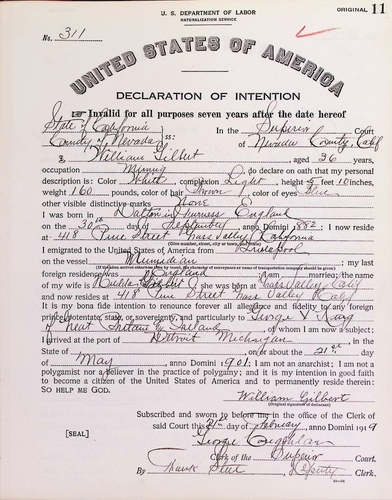 U. S. DEPARTMENT OF LABOR
NATURALIZATION SERVICE
ORIGINAL 11
No. 311
UNITED STATES OF AMERICA
DECLARATION OF INTENTION
Invalid for all purposes seven years after the date hereof
State of California
County of Nevada ss:
In the Superior Court
of Nevada County, Calif
I, William Gilbert, aged 36 years,
occupation Mining, do declare on oath that my personal
description is: Color White, complexion Light, height 5 feet 10 inches,
weight 160 pounds, color of hair Brown, color of eyes Blue
other visible distinctive marks None
I was born in Dalton in Furness England
on the 30th day of September, anno Domini 1882; I now reside
at 418 Pine Street Grass Valley, California
(Give number, street, city or town, and State.)
I emigrated to the United States of America from Liverpool
on the vessel Numidian; my last
(If the alien arrived otherwise than by vessel, the character of conveyance or name of transportation company should be given.)
foreign residence was England; I am married; the name
of my wife is Gilbert; she was born at Grass Valley, Calif
and now resides at 418 Pine Street Grass Valley Calif
It is my bona fide intention to renounce forever all allegiance and fidelity to any foreign
prince, potentate, state, or sovereignty, and particularly to George V King
of Great Britain & Ireland, of whom I am now a subject;
I arrived at the port of Detroit Michigan, in the
State of, on or about the 21st day
of May, anno Domini 1901; I am not an anarchist; I am not a
polygamist nor a believer in the practice of polygamy; and it is my intention in good faith
to become a citizen of the United States of America and to permanently reside therein:
SO HELP ME GOD.
William Gilbert
(Original signature of declarant)
Subscribed and sworn to before me in the office of the Clerk of
said Court this 21st day of February, anno Domini 1919
[SEAL]
George Coughlan
Clerk of the Superior Court.
By Frank Steel, Deputy Clerk.